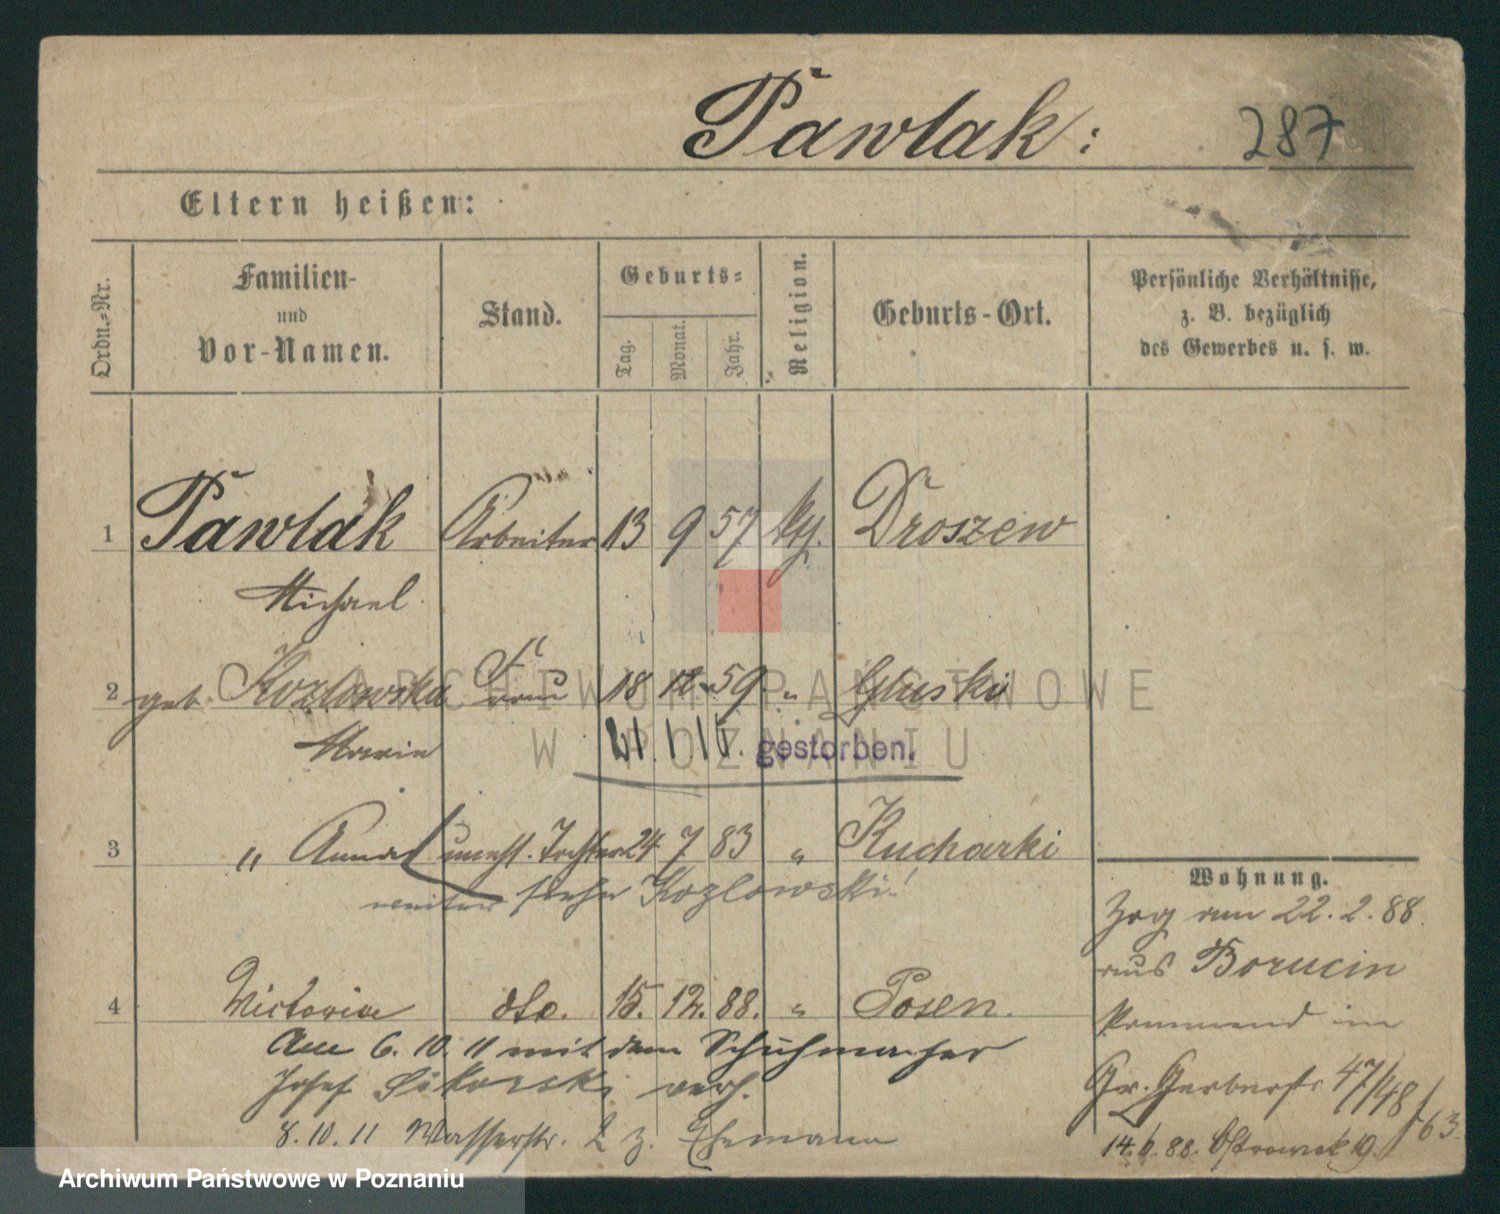 Pawlak: 287
Eltern heißen:
Ordn.-Nr.
Familien-
und
Vor-Namen.
Stand.
Geburts-
Tag. Monat. Jahr.
Religion.
Geburts-Ort.
Persönliche Verhältnisse,
z. B. bezüglich
des Gewerbes u. s. w.
1 Pawlak Arbeiter 13 9 57 kth. Droszew
Michael
2 geb. Kozlowska Frau 18 12 59 " Gluski
Marie
21. 1. gestorben.
3 " Anna unehl. Tochter 24 7 83 " Kucharki
weiter siehe Kozlowski!
4 Victoria dto. 15. 12. 88. " Posen.
Am 6. 10. 11 mit dem Schuhmacher
Josef Sikorski verh.
8. 10. 11 Wasserstr. 2 z. Ehemann
Wohnung.
Zog am 22. 2. 88.
aus Borucin
kommend in
Gr. Gerberstr 47/48
14. 6. 88. Ostrowek 19. 63.
ARCHIWUM PAŃSTWOWE
W POZNANIU
Archiwum Państwowe w Poznaniu